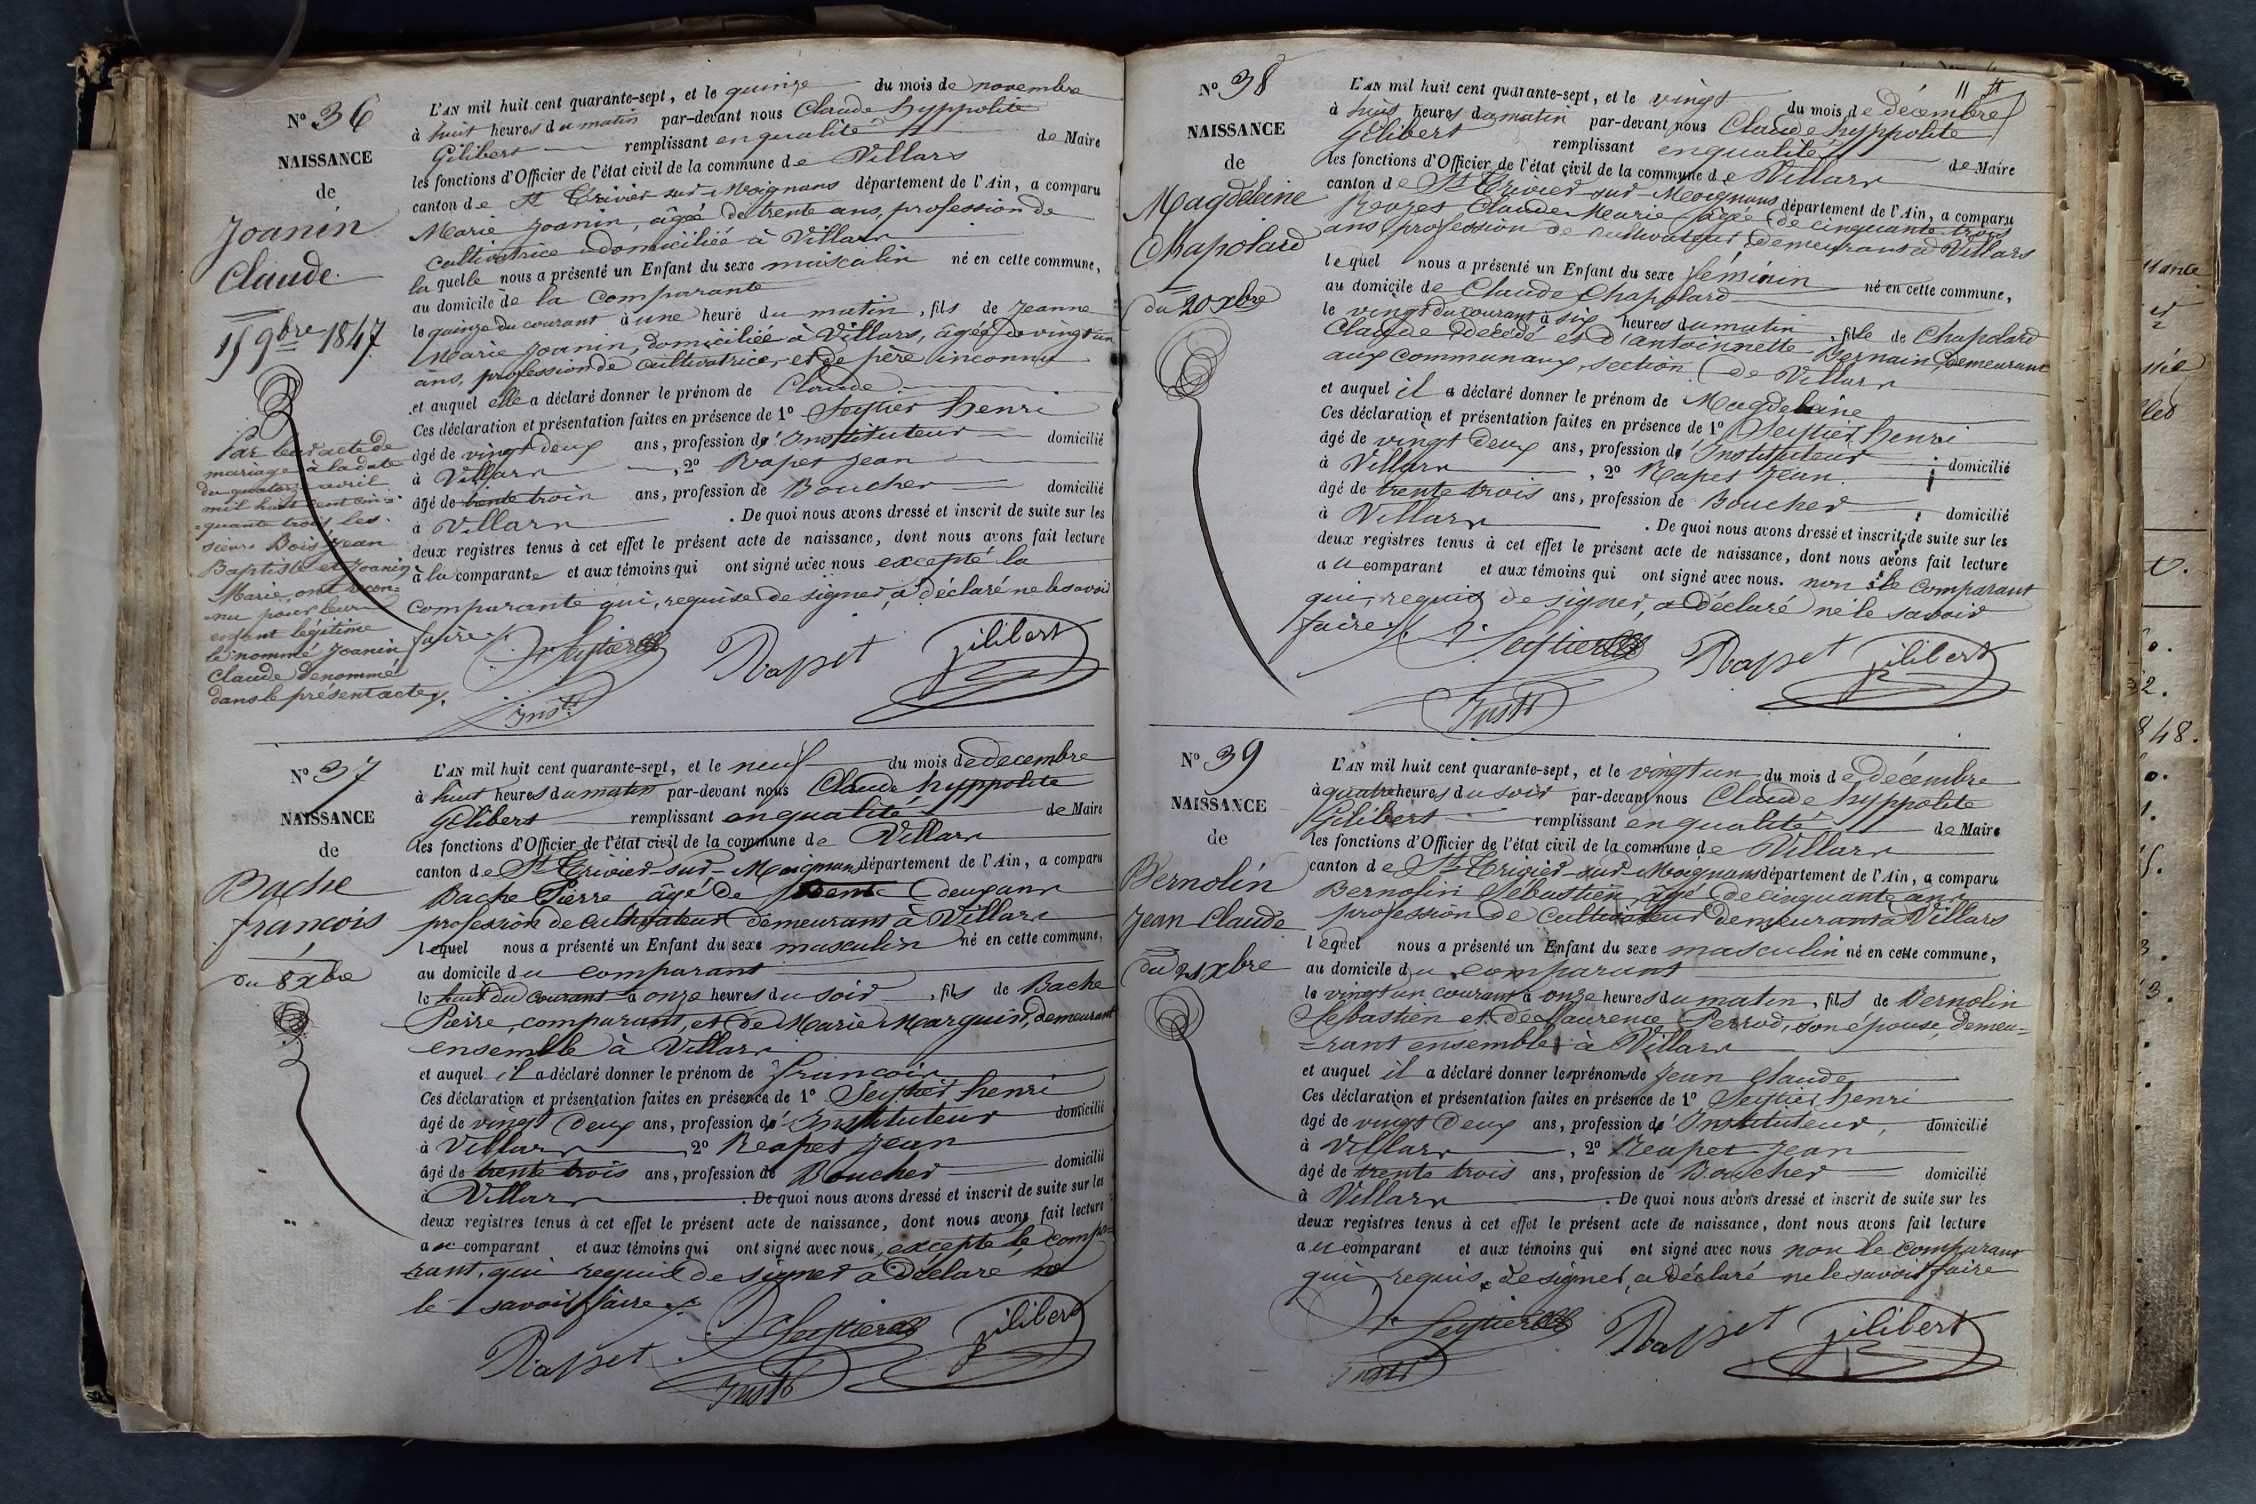 N° 36
NAISSANCE
de
Joanin
Claude
15 9bre 1847
Par leur acte de
mariage à la date
du quatorze avril
mil huit cent cin=
=quante trois les
sieurs Bois Jean
Baptiste et Joanin
Marie, ont recon=
=nu pour leur
enfant légitime
le nommé Joanin
Claude dénommé
dans le présent acte
L'AN mil huit cent quarante-sept, et le quinze du mois de novembre
à huit heures du matin par-devant nous Claude hyppolite
Gilibert remplissant en qualité de Maire
les fonctions d'Officier de l'état civil de la commune de Villars
canton de St Trivier sur Moignans département de l'Ain, a comparu
Marie Joanin, âgée de trente ans, profession de
cultivatrice domiciliée à Villars
la quelle nous a présenté un Enfant du sexe masculin né en cette commune,
au domicile de la comparante
le quinze du courant à une heure du matin, fils de Jeanne
Marie Joanin, domiciliée à Villars, âgée de vingt un
ans, profession de cultivatrice, et de père inconnu
et auquel elle a déclaré donner le prénom de Claude
Ces déclaration et présentation faites en présence de 1° Seytier henri
âgé de vingt deux ans, profession d'Instituteur domicilié
à Villars, 2° Rapet Jean
âgé de trente trois ans, profession de Boucher domicilié
à Villars. De quoi nous avons dressé et inscrit de suite sur les
deux registres tenus à cet effet le présent acte de naissance, dont nous avons fait lecture
à la comparante et aux témoins qui ont signé avec nous excepté la
comparante qui, requise de signer, a déclaré ne le savoir
faire
Seytier Rapet Gilibert
Instr
N° 37
NAISSANCE
de
Bache
françois
du 8 xbre
L'AN mil huit cent quarante-sept, et le neuf du mois de decembre
à huit heures du matin par-devant nous Claude hyppolite
Gilibert remplissant en qualité de Maire
les fonctions d'Officier de l'état civil de la commune de Villars
canton de St Trivier-sur-Moignans département de l'Ain, a comparu
Bache Pierre âgé de trente deux ans
profession de cultivateur demeurant à Villars
lequel nous a présenté un Enfant du sexe masculin né en cette commune,
au domicile du comparant
le huit du courant à onze heures du soir, fils de Bache
Pierre, comparant, et de Marie Marguin, demeurant
ensemble à Villars
et auquel il a déclaré donner le prénom de françois
Ces déclaration et présentation faites en présence de 1° Seytier henri
âgé de vingt deux ans, profession d'Instituteur domicilié
à Villars, 2° Rapet Jean
âgé de trente trois ans, profession de Boucher domicilié
à Villars. De quoi nous avons dressé et inscrit de suite sur les
deux registres tenus à cet effet le présent acte de naissance, dont nous avons fait lecture
au comparant et aux témoins qui ont signé avec nous, excepté le compa=
rant, qui requis de signer a déclaré ne
le savoir faire
Rapet Seytier Gilibert
Instr
N° 38
NAISSANCE
de
Magdeleine
Chapolard
du 20 xbre
L'AN mil huit cent quarante-sept, et le vingt du mois de décembre
à huit heures du matin par-devant nous Claude hyppolite
Gilibert remplissant en qualité de Maire
les fonctions d'Officier de l'état civil de la commune de Villars
canton de St Trivier-sur-Moignans département de l'Ain, a comparu
Claude Marie âgé de cinquante trois
ans profession de cultivateur, demeurant à Villars
lequel nous a présenté un Enfant du sexe féminin né en cette commune,
au domicile de Claude Chapolard
le vingt du courant à six heures du matin, fille de Chapolard
Claude décédé et d'antoinnette Bernain, demeurant
aux communaux, section de Villars
et auquel il a déclaré donner le prénom de Magdeleine
Ces déclaration et présentation faites en présence de 1° Seytier henri
âgé de vingt deux ans, profession d'Instituteur domicilié
à Villars, 2° Rapet Jean
âgé de trente trois ans, profession de Boucher domicilié
à Villars. De quoi nous avons dressé et inscrit de suite sur les
deux registres tenus à cet effet le présent acte de naissance, dont nous avons fait lecture
au comparant et aux témoins qui ont signé avec nous. non le comparant
qui, requis de signer, a déclaré ne le savoir
faire
Seytier Rapet Gilibert
Instr
N° 39
NAISSANCE
de
Bernolin
Jean Claude
du 21 xbre
L'AN mil huit cent quarante-sept, et le vingt un du mois de décembre
à quatre heures du soir par-devant nous Claude hyppolite
Gilibert remplissant en qualité de Maire
les fonctions d'Officier de l'état civil de la commune de Villars
canton de St Trivier-sur-Moignans département de l'Ain, a comparu
Bernolin Sébastien, âgé de cinquante ans
profession de cultivateur demeurant à Villars
lequel nous a présenté un Enfant du sexe masculin né en cette commune,
au domicile du comparant
le vingt un courant à onze heures du matin, fils de Bernolin
Sébastien et de Laurence Perrod, son épouse, demeu=
=rant ensemble à Villars
et auquel il a déclaré donner les prénoms de Jean Claude
Ces déclaration et présentation faites en présence de 1° Seytier henri
âgé de vingt deux ans, profession d'Instituteur, domicilié
à Villars, 2° Rapet Jean
âgé de trente trois ans, profession de Boucher domicilié
à Villars. De quoi nous avons dressé et inscrit de suite sur les
deux registres tenus à cet effet le présent acte de naissance, dont nous avons fait lecture
au comparant et aux témoins qui ont signé avec nous non le comparant
qui, requis de signer, a déclaré ne le savoir faire
Seytier Rapet Gilibert
Instr